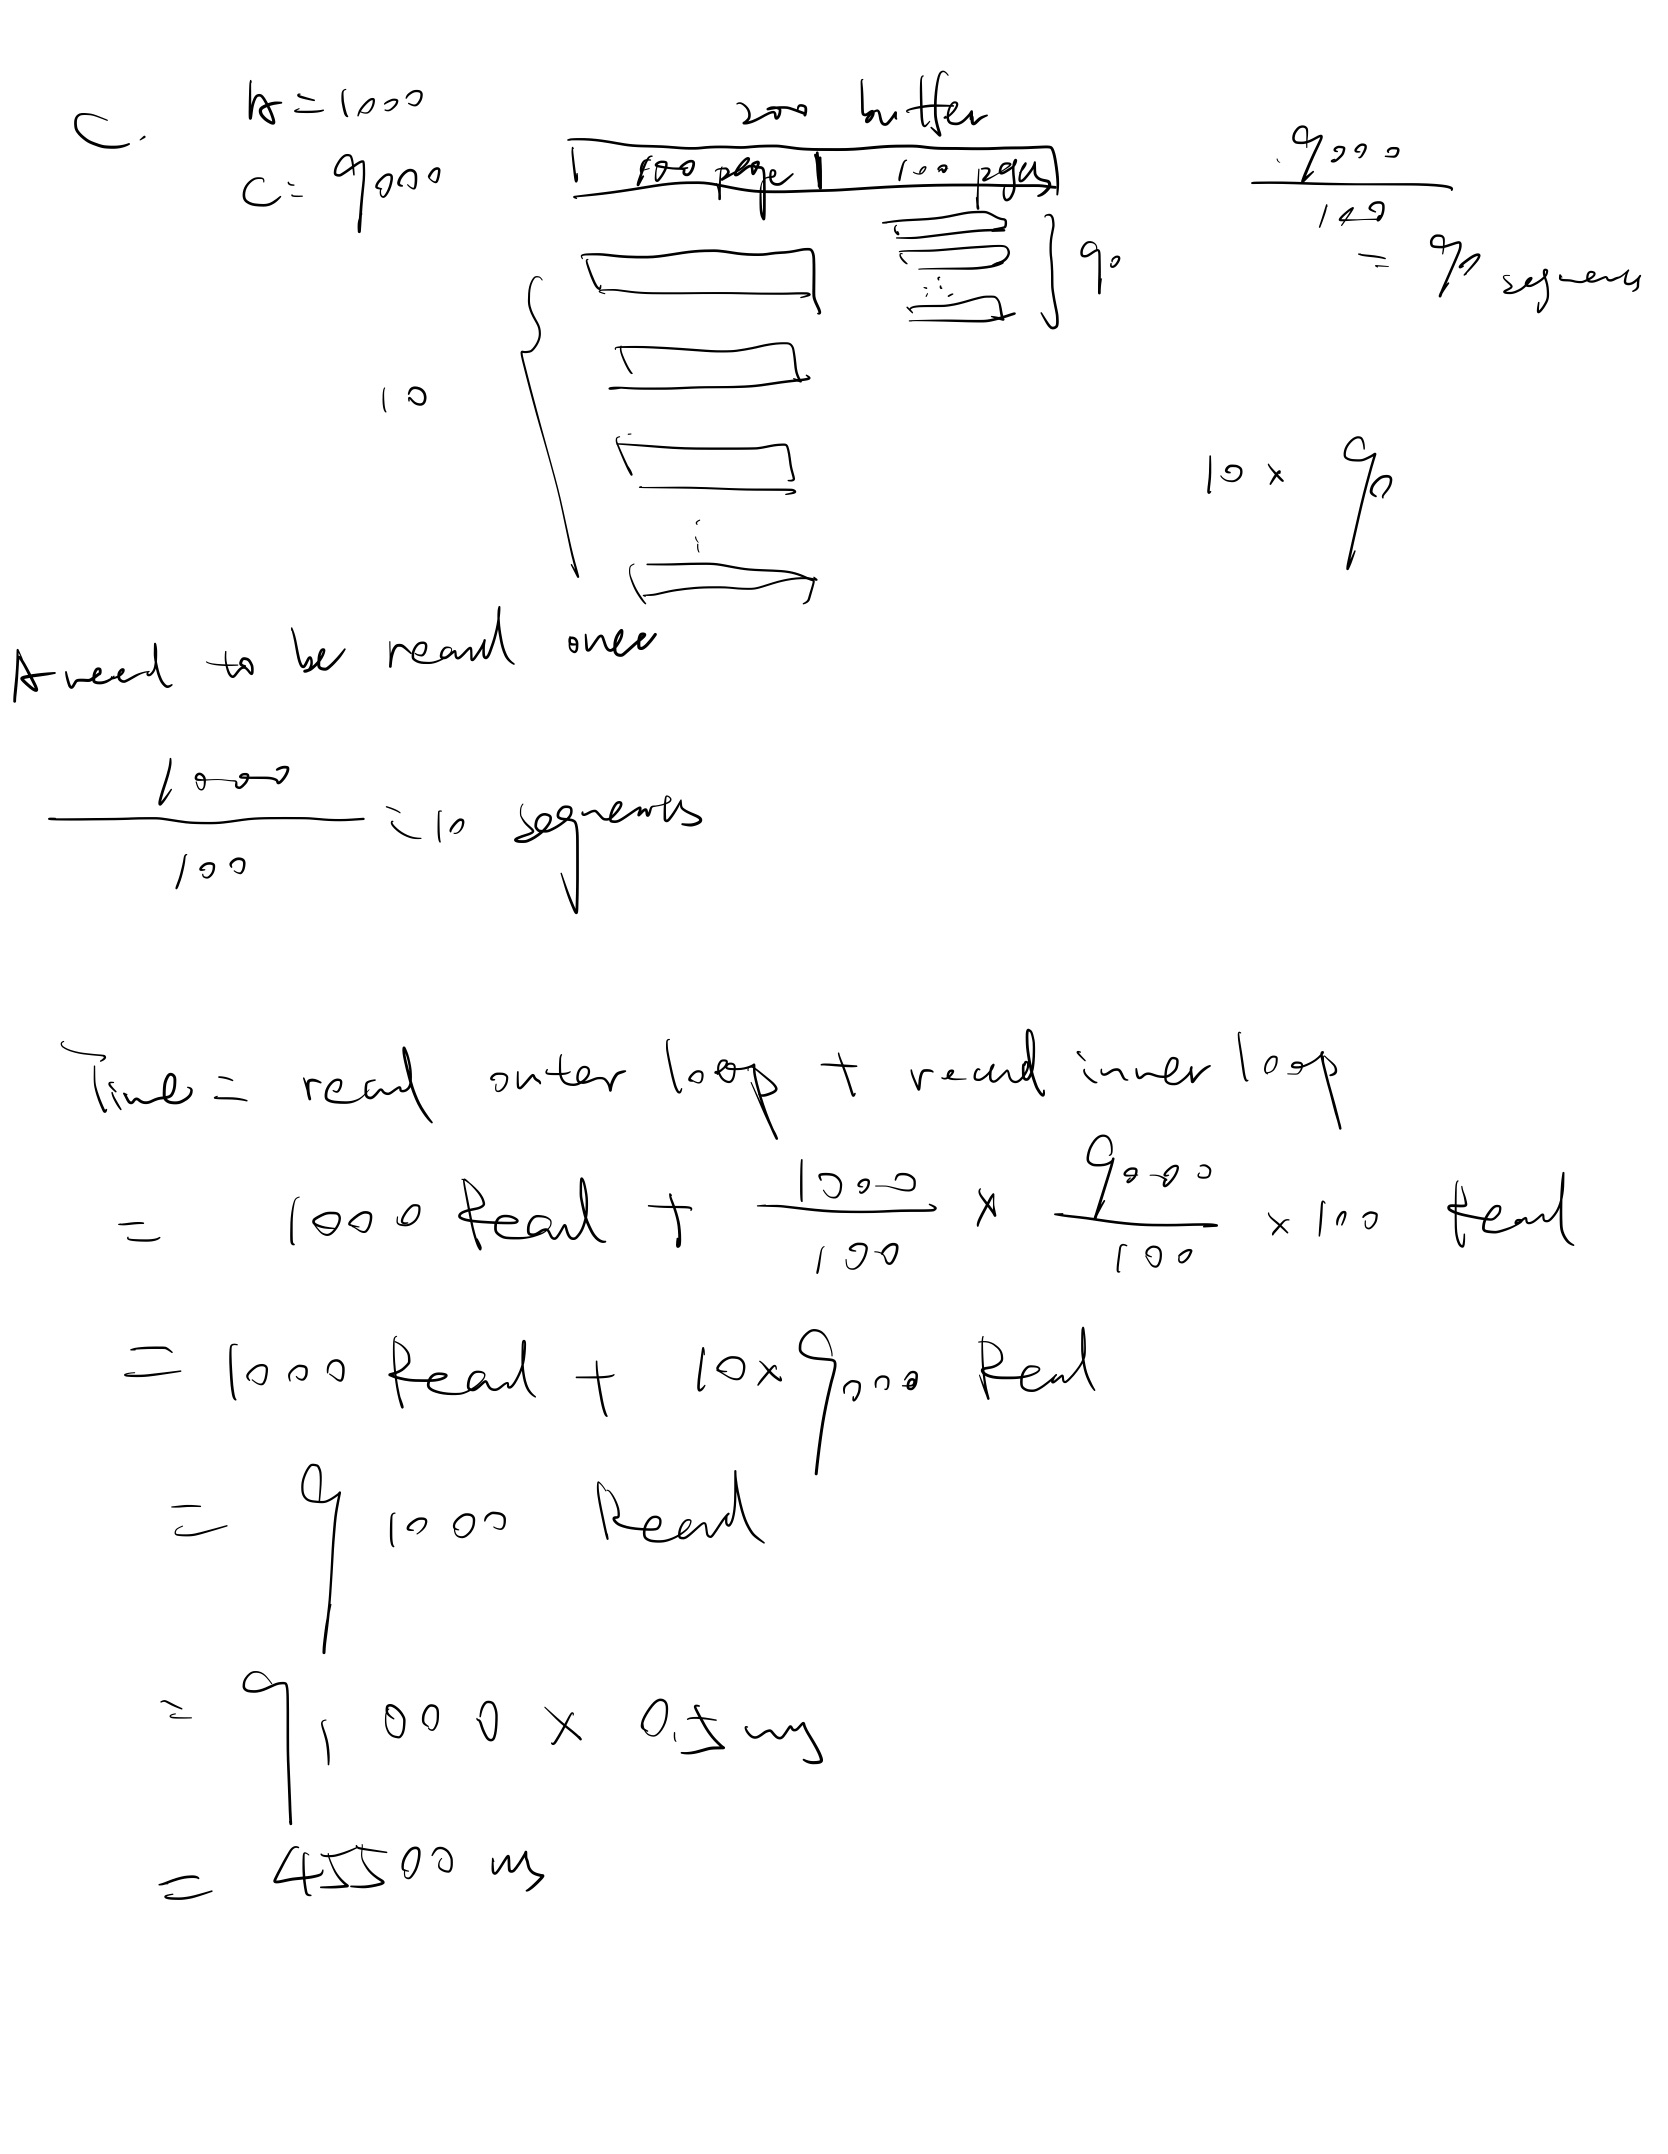 C.
A = 1000
C = 9000
200 buffer
100 page
100 pges
9000
100
= 90 segments
90
10
10 x 90
A need to be read once
1000
100
= 10 segments
Time = read outer loop + read inner loop
= 1000 Read + 1000/100 x 9000/100 x 100 Read
= 1000 Read + 10 x 9000 Read
= 91000 Read
= 91000 x 0.5 ms
= 45500 ms